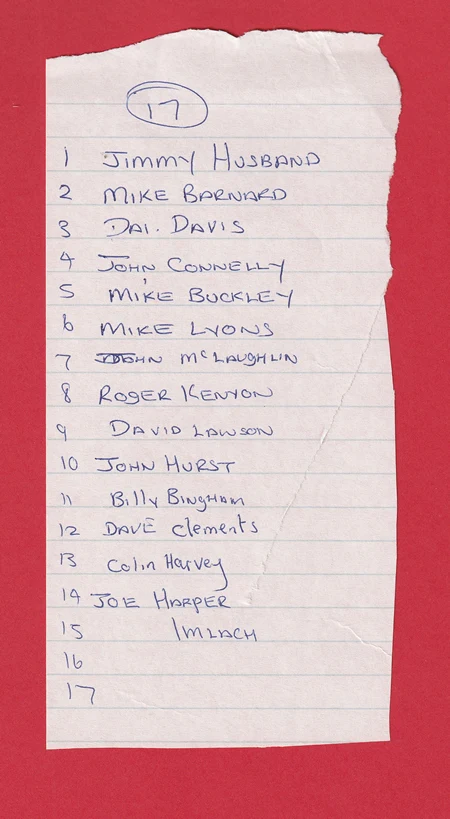 17
1 Jimmy Husband
2 MIKE BARNARD
3 DAI. DAVIS
4 JOHN CONNELLY
5 MIKE BUCKLEY
6 MIKE LYONS
7 JOHN McLAUGHLIN
8 ROGER KENYON
9 DAVID LAWSON
10 JOHN HURST
11 Billy Bingham
12 DAVE Clements
13 Colin Harvey
14 JOE HARPER
15 IMLACH
16
17